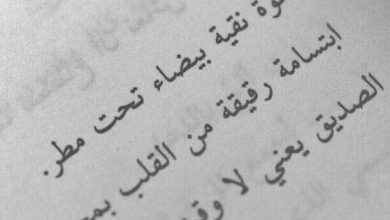 نقية بيضاء تحت مطر.
ابتسامة رقيقة من القلب
الصديق يعني لا